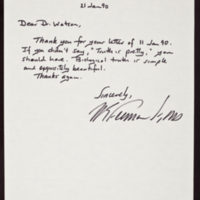 21 Jan 90
Dear Dr. Watson,
Thank you for your letter of 11 Jan 90.
If you didn't say, "Truth is pretty," you
should have. Biological truth is simple
and exquisitely beautiful.
Thanks again.
Sincerely,